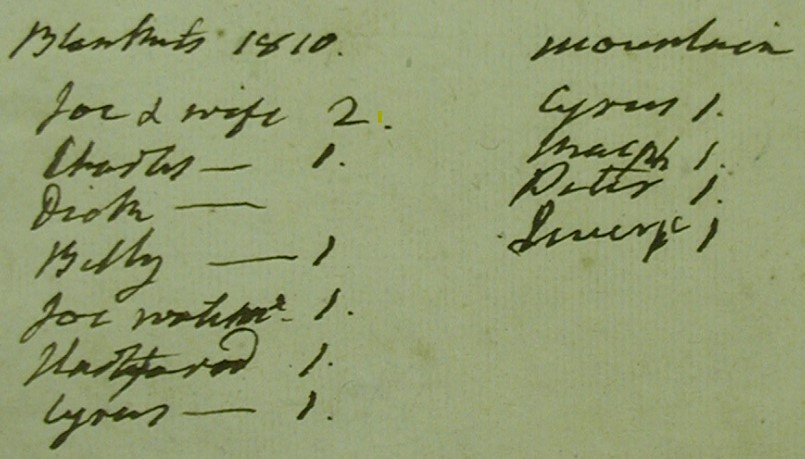 Blankets 1810.
Joe & wife 2.
Charles — 1.
Dick —
Billy — 1
Joe 1.
1.
Cyrus — 1.
mountain
Cyrus 1.
1.
Peter 1.
1